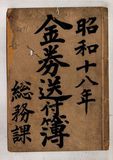 昭和十八年
金券送付簿
総務課